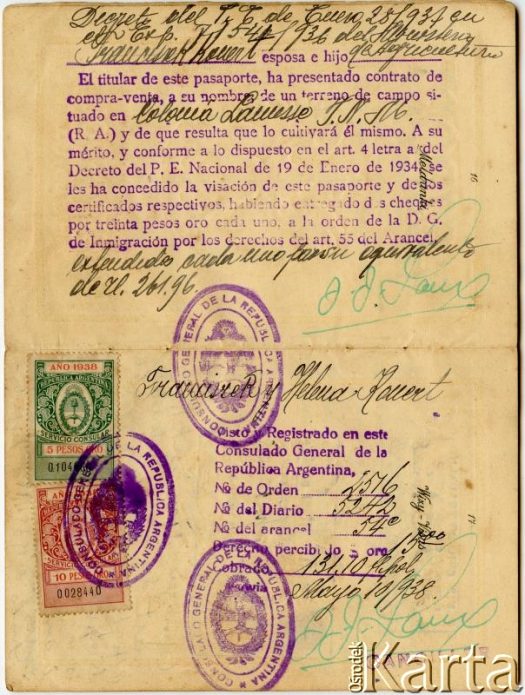 Decreto del P. E. de Enero 28/937 en
exp. Exp. 1540/936 del Ministerio
Franciszek Kouert esposa e hijo de Agricultura
El titular de este pasaporte, ha presentado contrato de
compra-venta, a su nombre de un terreno de campo si-
tuado en Colonia Lanusse
(R. A.) y de que resulta que lo cultivará él mismo. A su
mérito, y conforme a lo dispuesto en el art. 4 letra a) del
Decreto del P. E. Nacional de 19 de Enero de 1934, se
les ha concedido la visación de este pasaporte y de los
certificados respectivos, habiendo entregado dos cheques
por treinta pesos oro cada uno, a la orden de la D. G.
de Inmigración por los derechos del art. 55 del Arancel,
extendidos cada uno por su equivalente
de zl. 261.96.
16
CONSULADO GENERAL DE LA REPUBLICA ARGENTINA
Franciszek y Helena Kouert
Visto y Registrado en este
Consulado General de la
República Argentina,
№ de Orden 2516
№ del Diario 5242
№ del arancel 54
Derecho percibido $ oro 15.00
Cobrado 131,10
Mayo 10/938.
17
AÑO 1938
REPUBLICA ARGENTINA
SERVICIO CONSULAR
5 PESOS ORO
10 PESOS ORO
0028440
CONSULADO GENERAL DE LA REPUBLICA ARGENTINA
CONSULADO GENERAL DE LA REPUBLICA ARGENTINA
Ośrodek
Karta